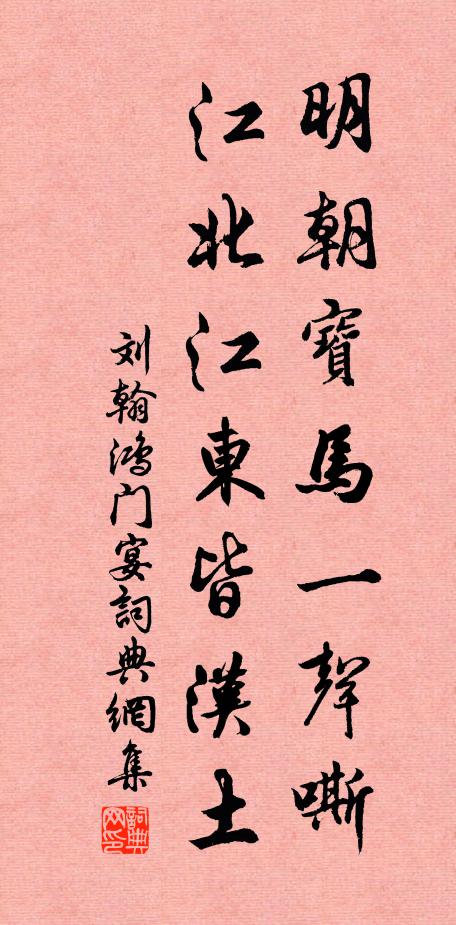 明朝寶馬一聲嘶
江北江東皆漢土
刘翰鸿门宴詞典網集
詞典网印